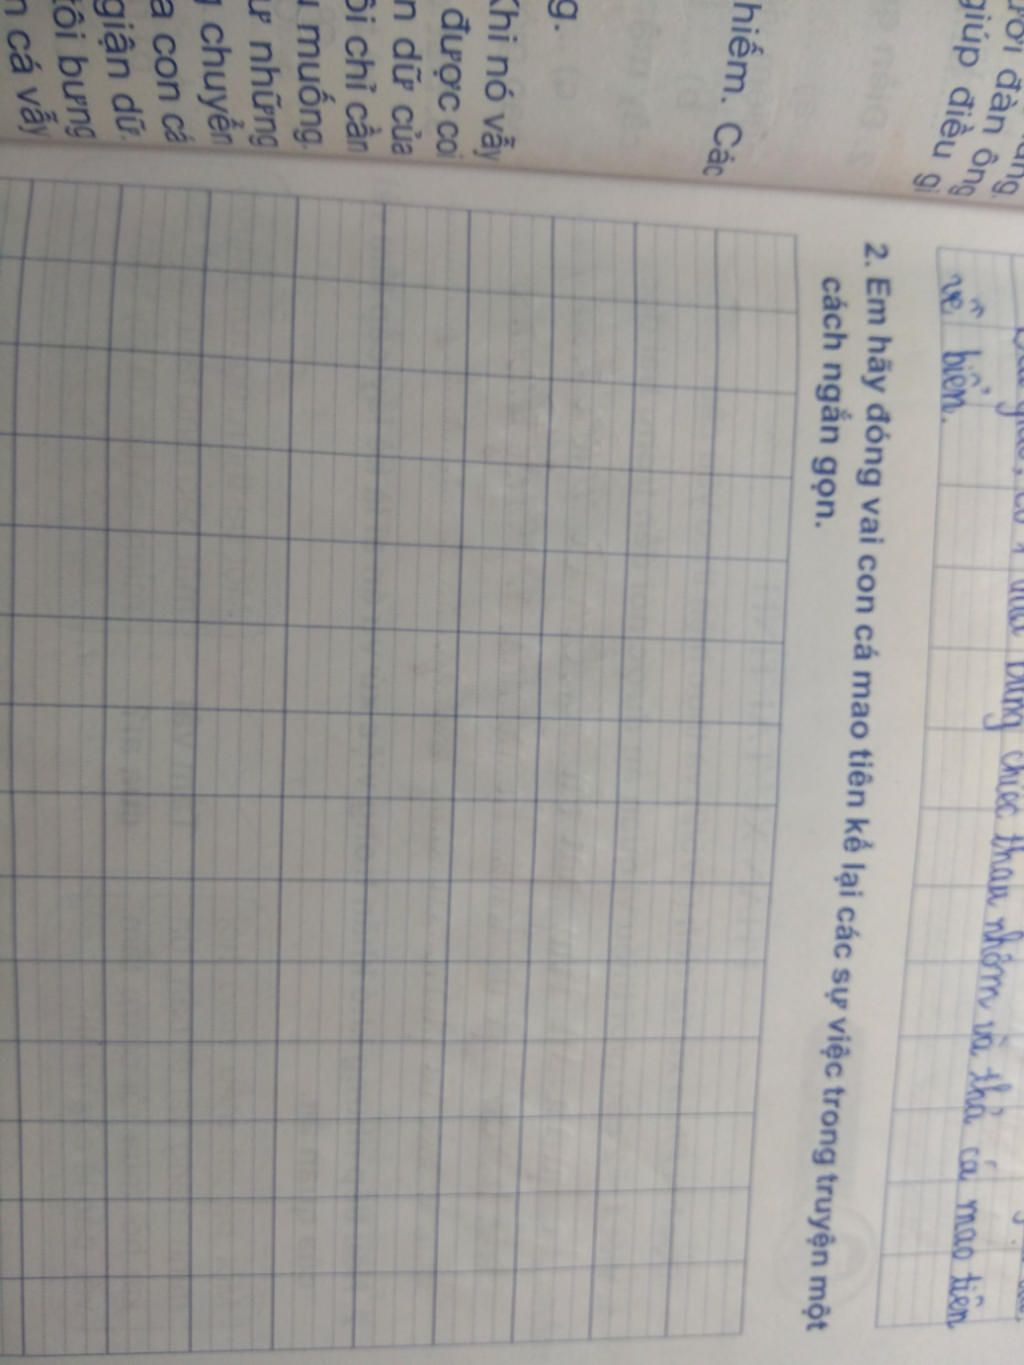 ười đàn ông
giúp điều gì
hiếm. Các
g.
Khi nó vẫy
được coi
n dữ của
ôi chỉ cần
muống.
ư những
chuyển
a con cá
giận dữ.
tôi bưng
n cá vẫy
bưng chiếc thau nhôm và thả cá mao tiên
về biển.
2. Em hãy đóng vai con cá mao tiên kể lại các sự việc trong truyện một
cách ngắn gọn.